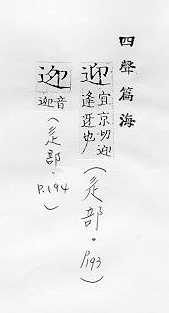 四聲篇海
迎
宜京切迎
逢迓也
(辵部。P.193)
迎
音
迎
(辵部.P.194)